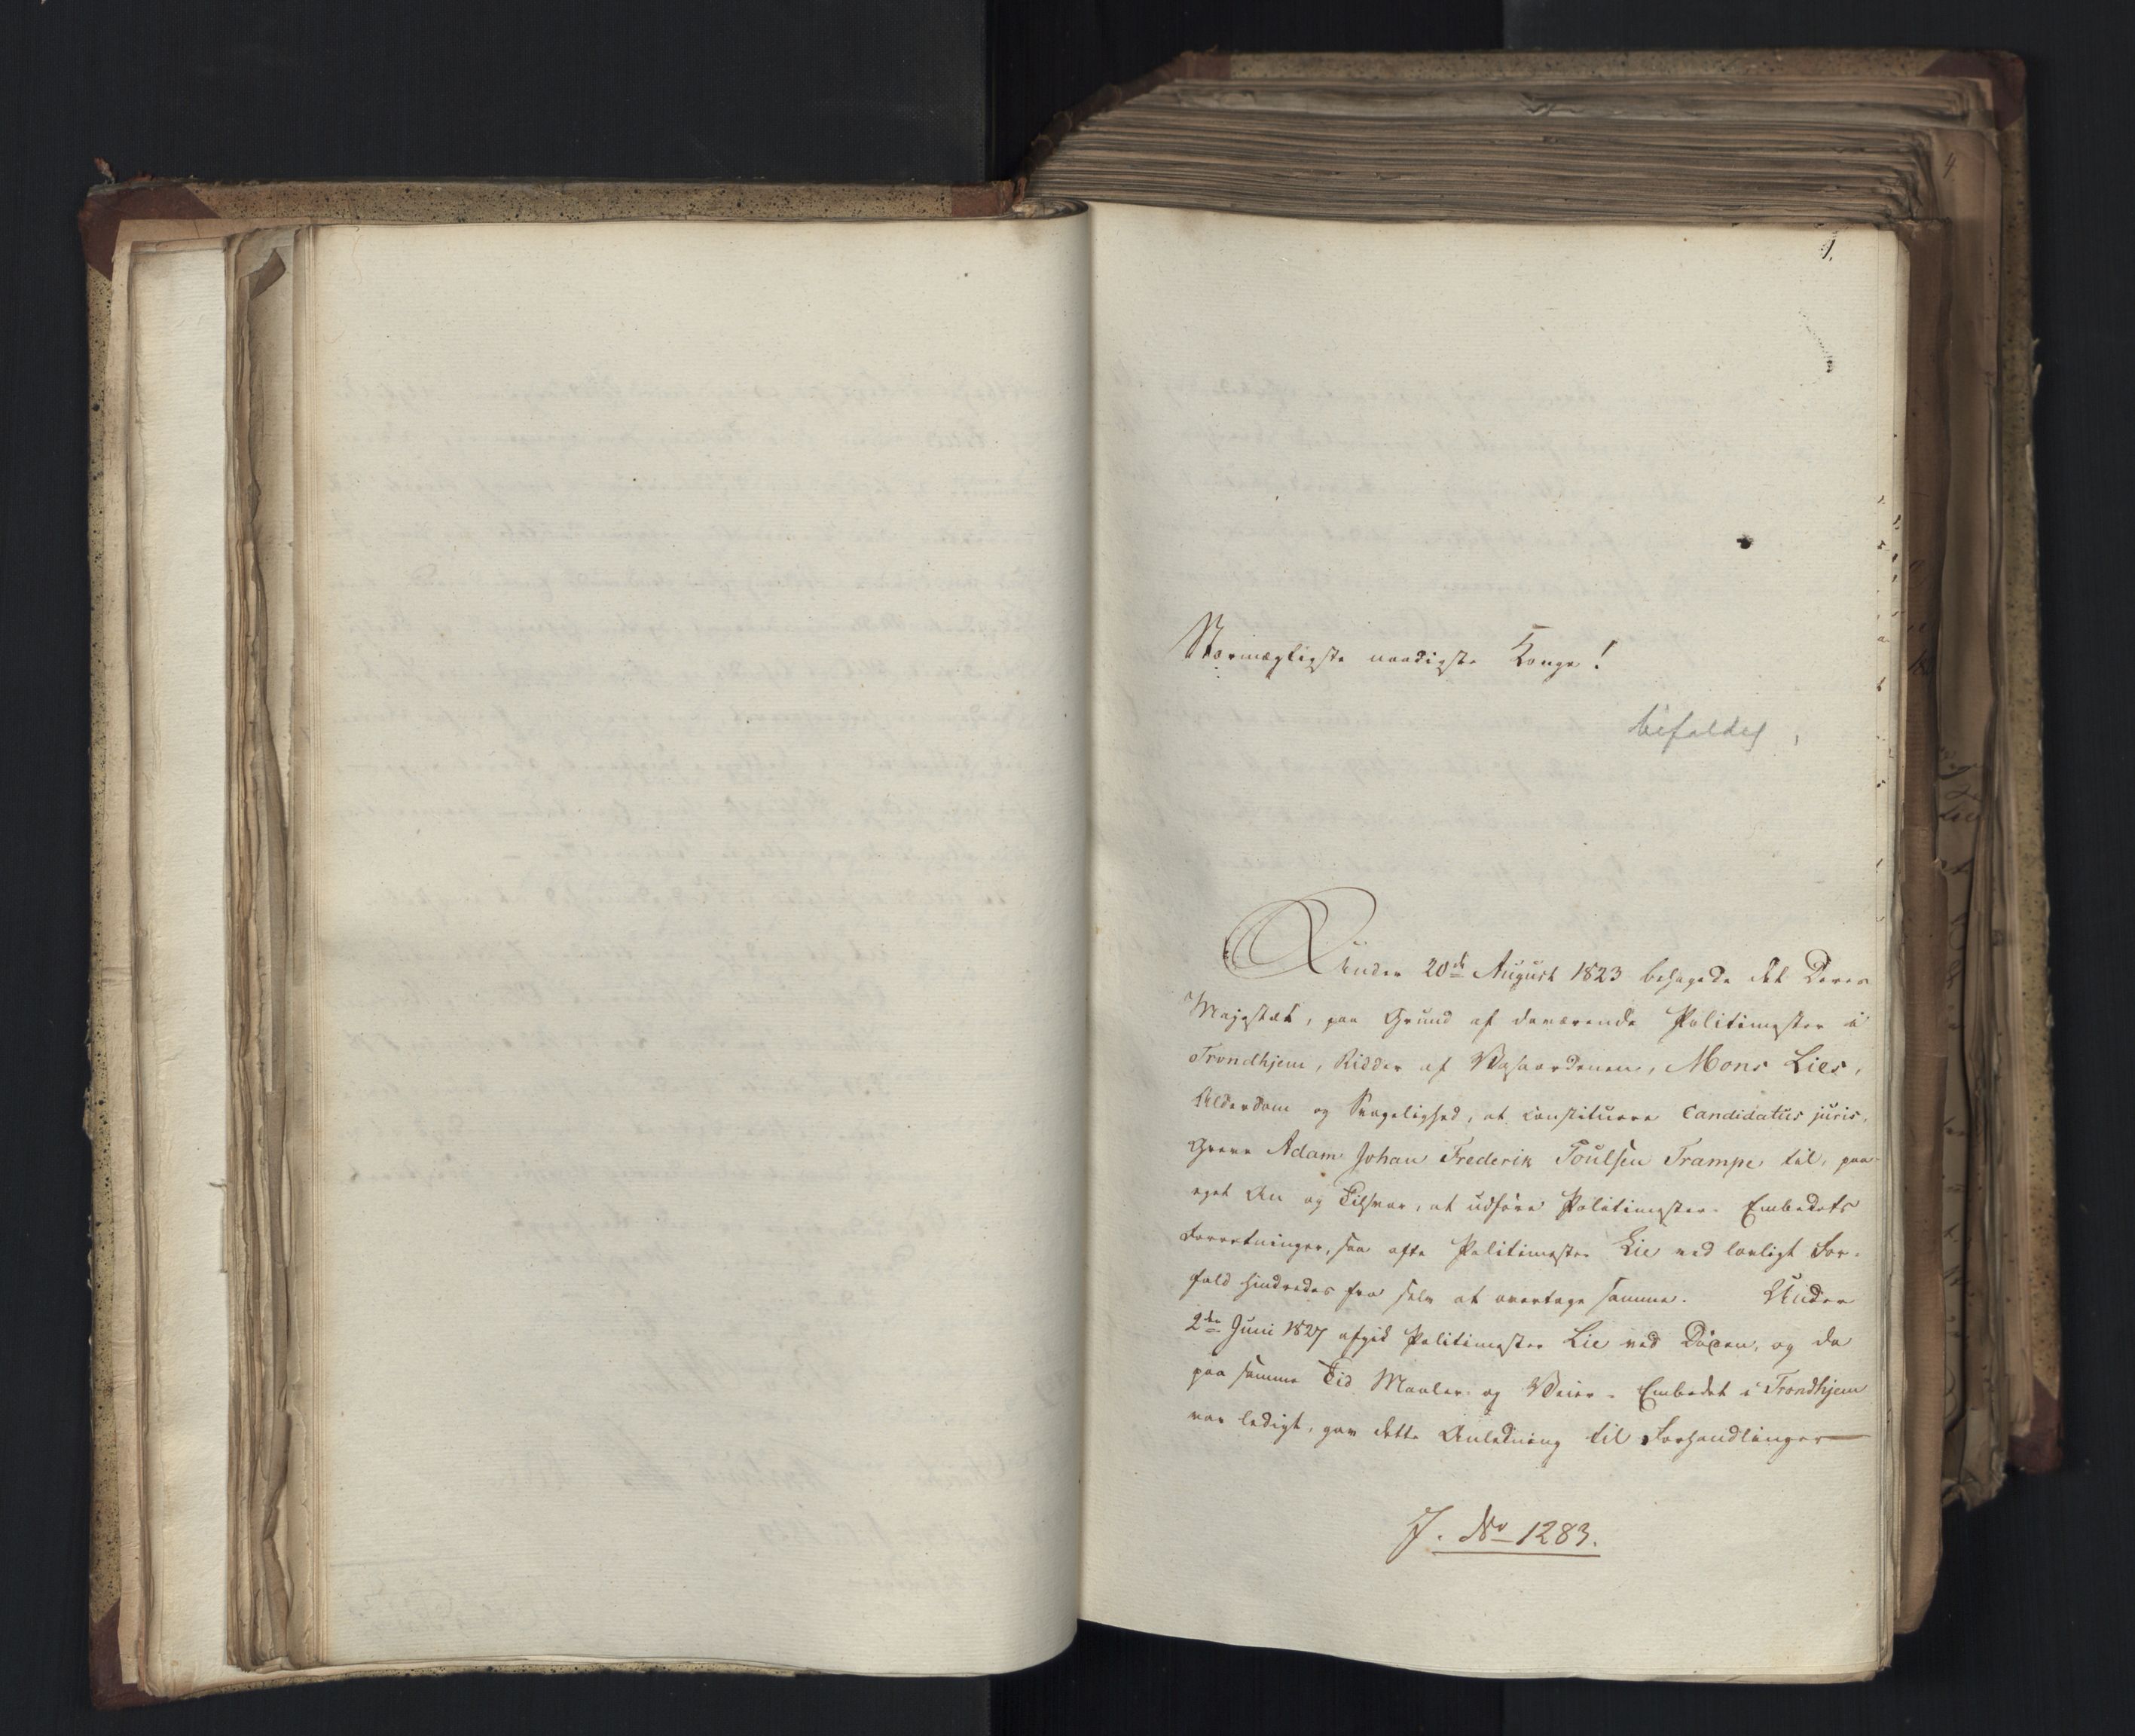 1.
Stormægtigste naadigste Konge!
bifaldes,
Under 20de August 1823 behagede det Deres
Majestæt, paa Grund af daværende Politimester i
Trondhjem, Ridder af Vasaordenen, Mons Lies,
Alderdom og Svagelighed, at constituere Candidatus juris,
Greve Adam Johan Frederik Poulsen Trampe til, paa
eget An og Tilsvar, at udføre Politimester-Embedets
Forretninger, saa ofte Politimester Lie ved lovligt For-
fald hindredes fra selv at overtage samme. Under
2den Juni 1827 afgik Politimester Lie ved Døden, og da
paa samme Tid Maaler- og Veier-Embedet i Trondhjem
var ledigt, gav dette Anledning til Forhandlinger
J. No 1283.